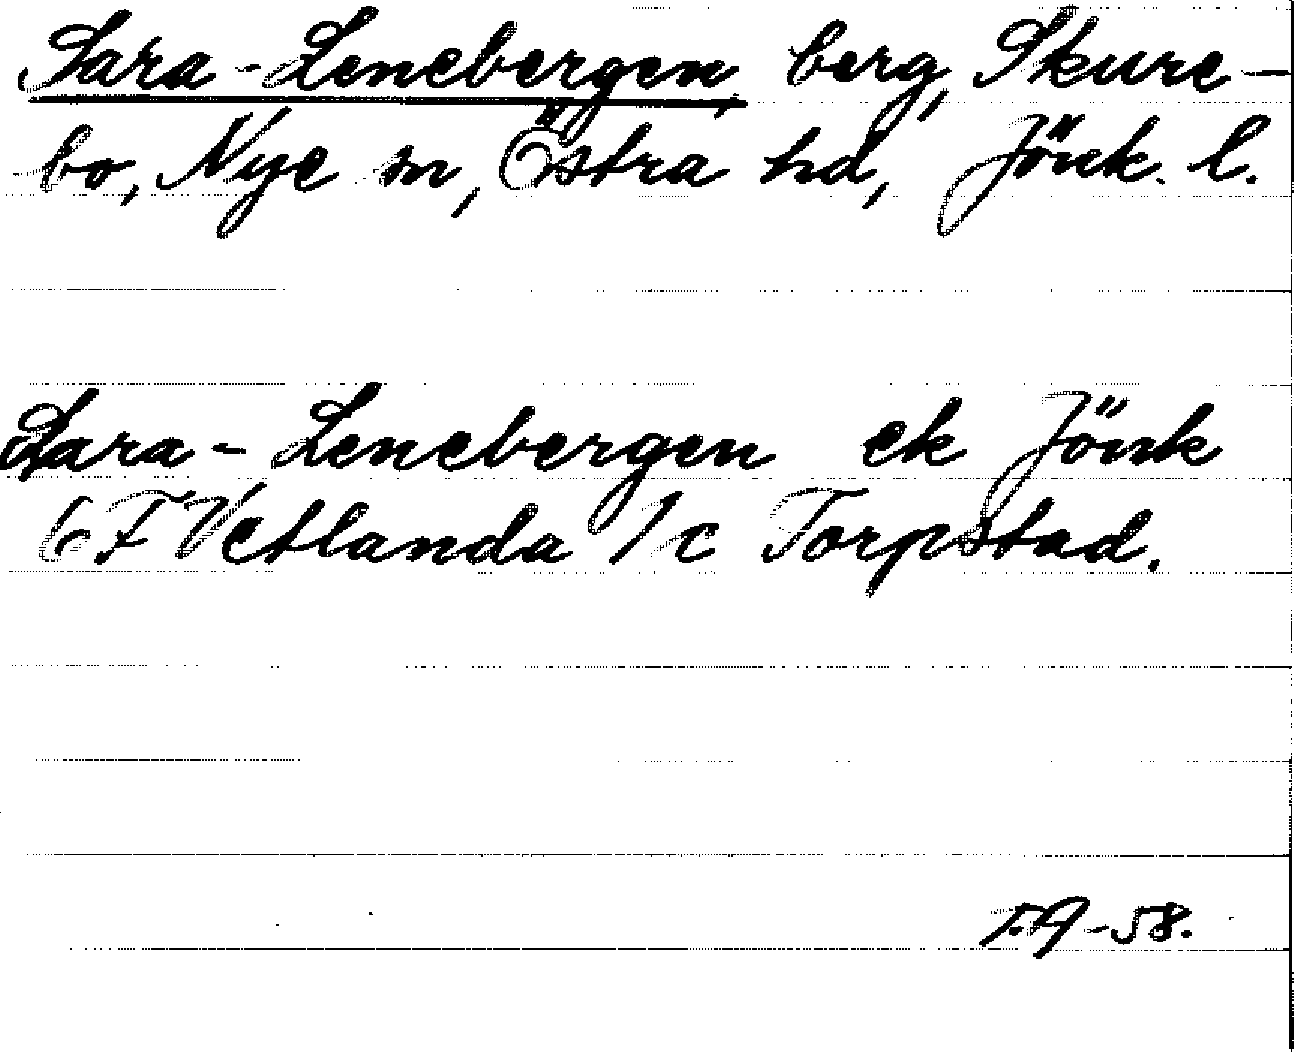 Sara-Lenebergen, berg, Skure-
bo, Nye sn, Östra hd, Jönk. l.
Sara-Lenebergen ek Jönk
6 F Vetlanda 1 c Torpstad.
T.A-58.